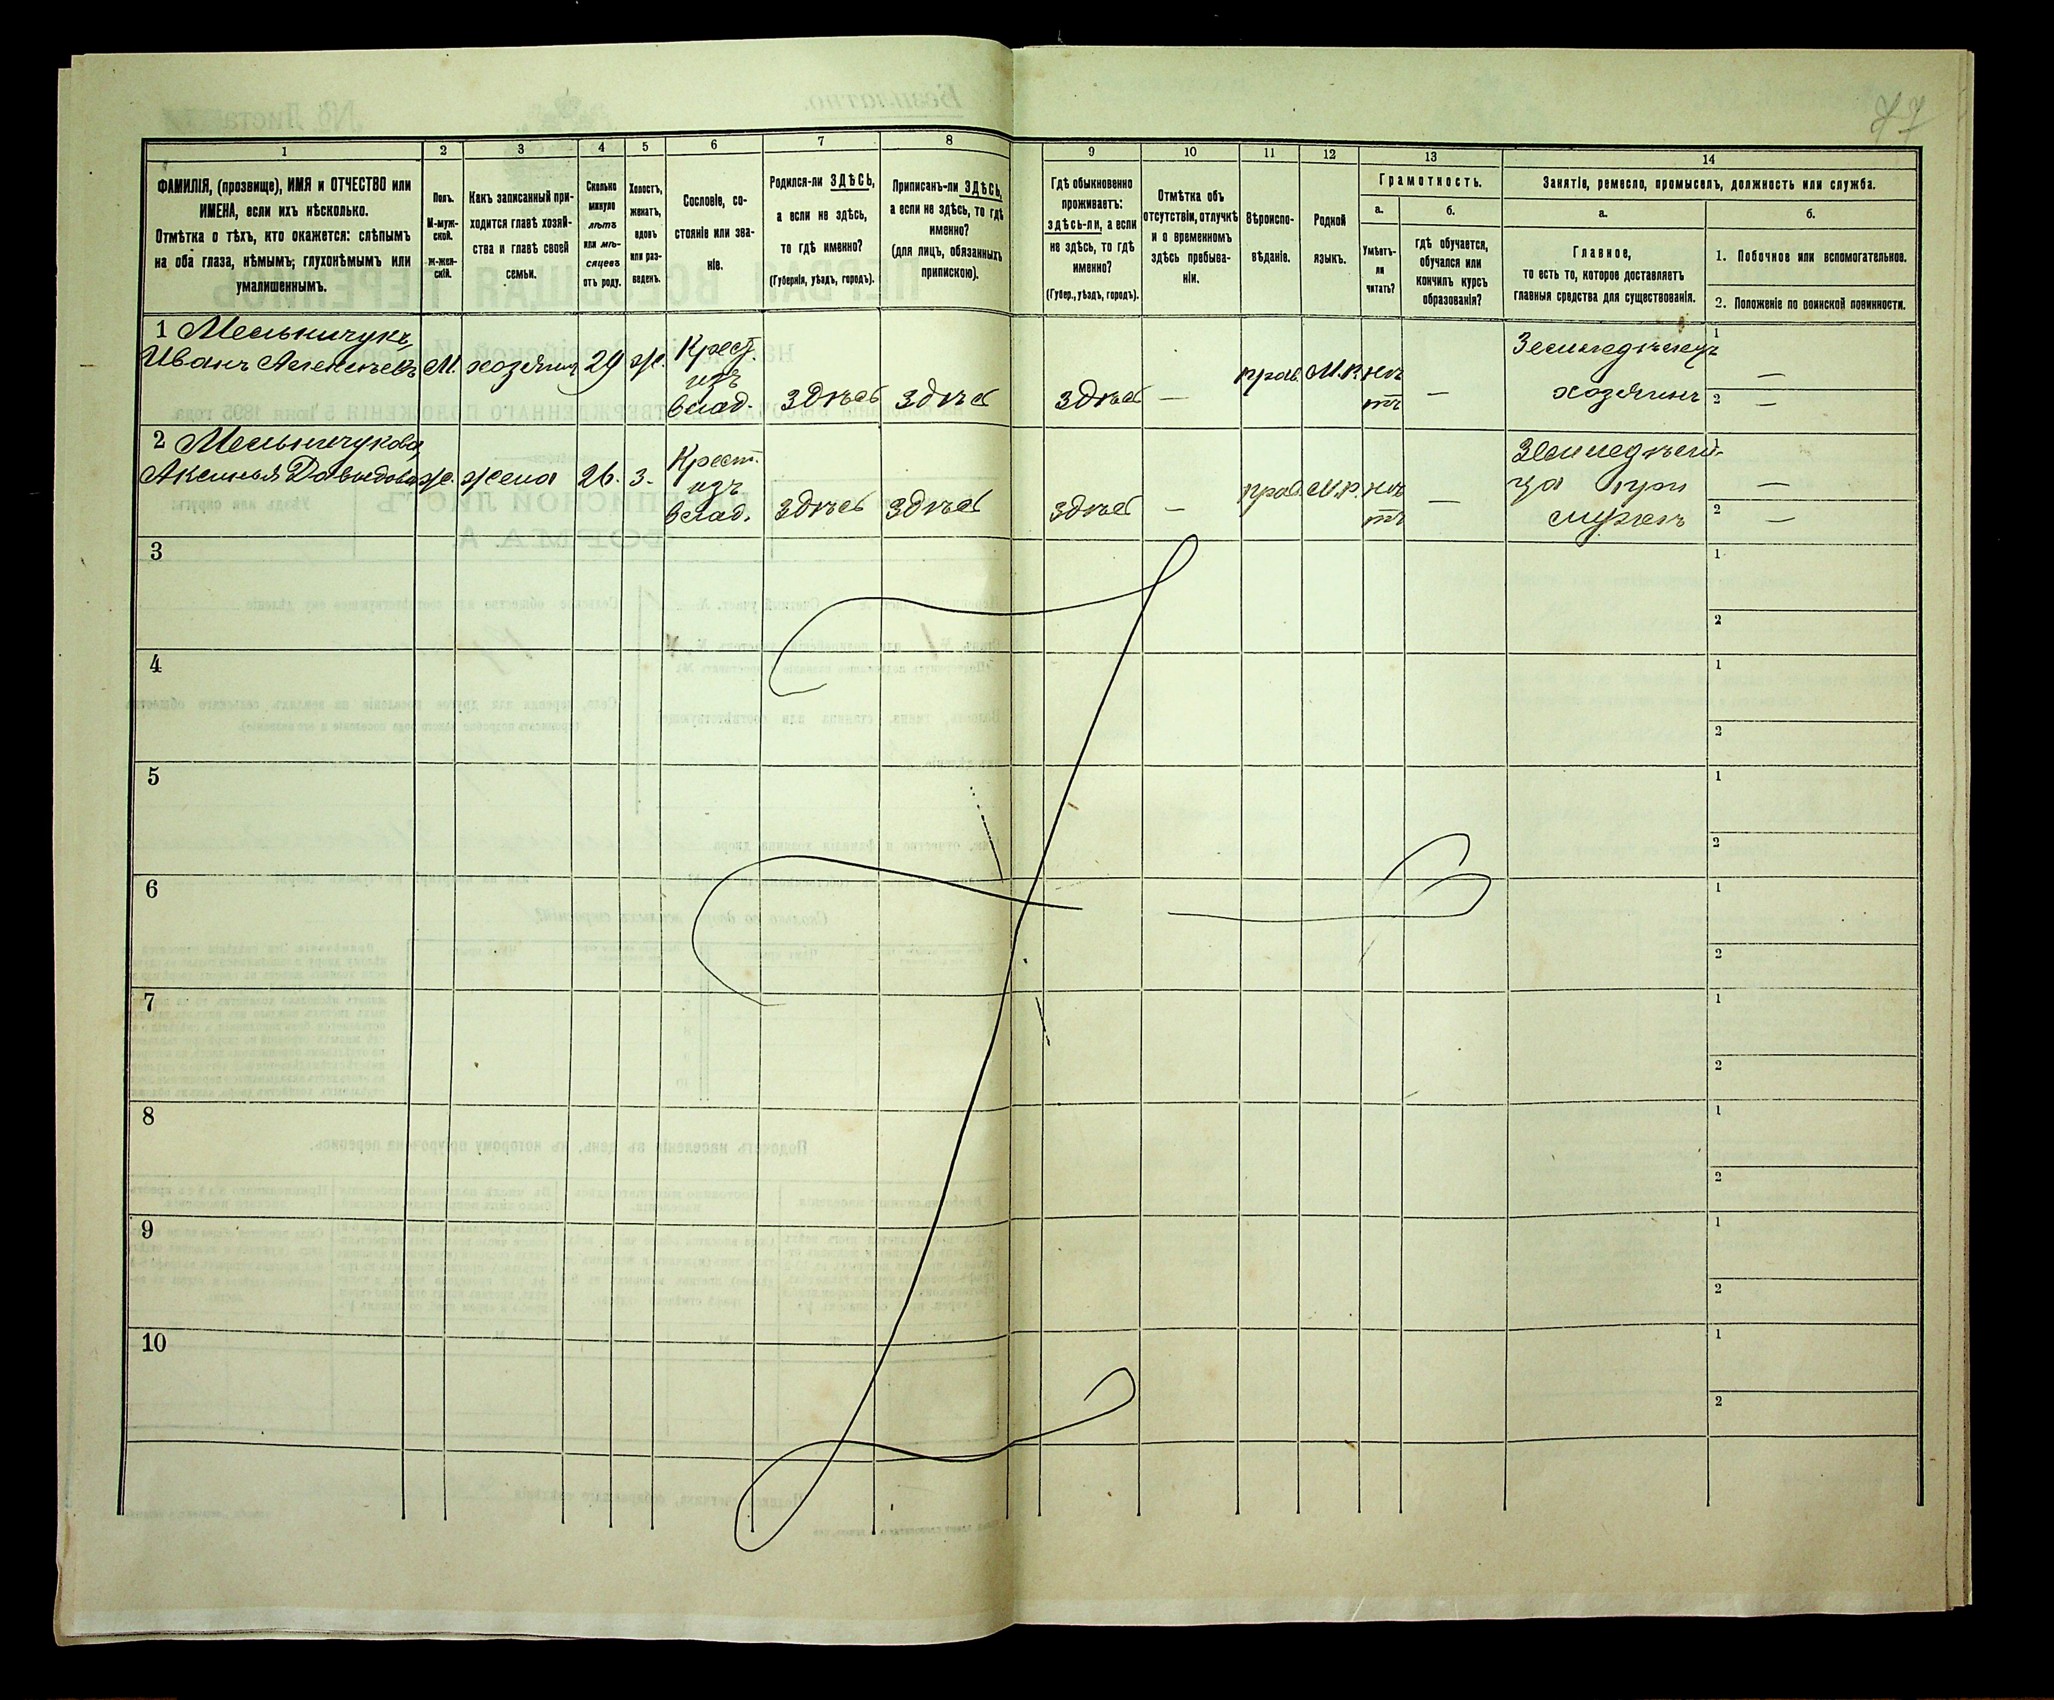 77
1 2 3 4 5 6 7 8 9 10 11 12 13 14
ФАМИЛІЯ, (прозвище), ИМЯ и ОТЧЕСТВО или
ИМЕНА, если ихъ нѣсколько.
Отмѣтка о тѣхъ, кто окажется: слѣпымъ
на оба глаза, нѣмымъ; глухонѣмымъ или
умалишеннымъ.
Полъ.
М-муж-
ской.
ж-жен-
скій.
Какъ записанный при-
ходится главѣ хозяй-
ства и главѣ своей
семьи.
Сколько
минуло
лѣтъ
или мѣ-
сяцевъ
отъ роду.
Холостъ,
женатъ,
вдовъ
или раз-
веденъ.
Сословіе, со-
стояніе или зва-
ніе.
Родился-ли ЗДѢСЬ,
а если не здѣсь,
то гдѣ именно?
(Губернія, уѣздъ, городъ).
Приписанъ-ли ЗДѢСЬ,
а если не здѣсь, то гдѣ
именно?
(для лицъ, обязанныхъ
припискою).
Гдѣ обыкновенно
проживаетъ:
здѣсь-ли, а если
не здѣсь, то гдѣ
именно?
(Губер., уѣздъ, городъ).
Отмѣтка объ
отсутствіи, отлучкѣ
и о временномъ
здѣсь пребыва-
ніи.
Вѣроиспо-
вѣданіе.
Родной
языкъ.
Грамотность.
а.
Умѣетъ-
ли
читать?
б.
гдѣ обучается,
обучался или
кончилъ курсъ
образованія?
Занятіе, ремесло, промыселъ, должность или служба.
а.
Главное,
то есть то, которое доставляетъ
главныя средства для существованія.
б.
1. Побочное или вспомогательное.
2. Положеніе по воинской повинности.
1 Мельничукъ
Иванъ Агеньевъ М. хозяинъ 29 ж. Крест.
изъ
влад. здѣсь здѣсь здѣсь — прав. М.р. нѣ
тъ — Земледѣлецъ
хозяинъ 1 —
2 —
2 Мельничукова
Аксинья Давыдова ж. жена 26. з. Крест.
изъ
влад. здѣсь здѣсь здѣсь — прав. М.р. нѣ
тъ — Земледѣлі-
ца при
мужѣ 1 —
2 —
3 1
2
4 1
2
5 1
2
6 1
2
7 1
2
8 1
2
9 1
2
10 1
2